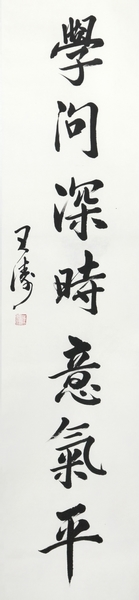 學問深時意氣平
王濤